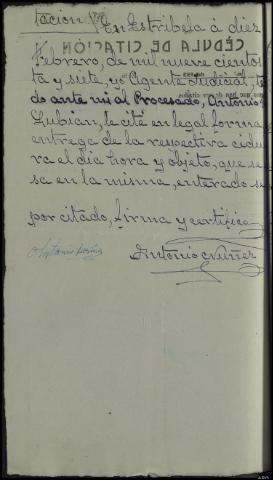 tación En Estribela á diez
Febrero, de mil nueve ciento
ta y siete, yo Agente Judicial, te
do ante mi al Procesado, Antonio
Lubian, le cité en legal forma
entrega de la respectiva cédu
ra el dia hora y objeto, que se
sa en la misma, enterado se
por citado, firma y certifico
Antonio Nuñez
CÉDULA DE CITACIÓN